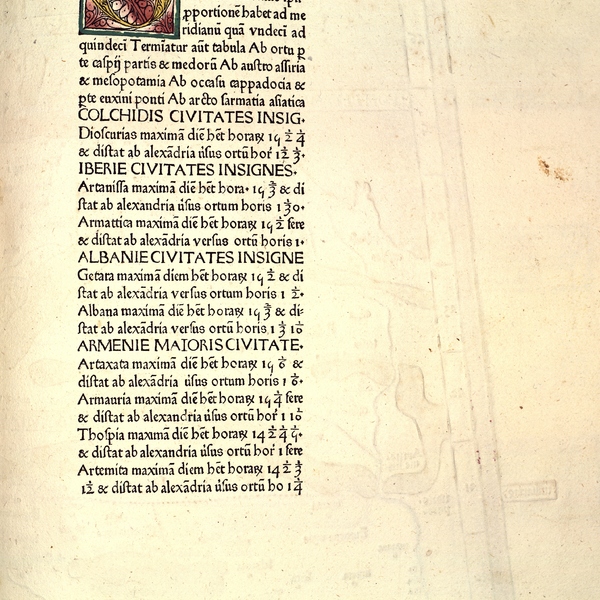 ꝓportionē habet ad me
ridianū quā vndeci ad
quindeci Termiatur aūt tabula Ab ortu p
te caspij partis & medorū Ab austro assiria
& mesopotamia Ab occasu cappadocia &
ꝑte euxini ponti Ab arcto sarmatia asiatica
COLCHIDIS CIVITATES INSIG.
Dioscurias maximā diē hēt horaꝝ 1
& distat ab alexādria ùsus ortū hor̕
IBERIE CIVITATES INSIGNES.
Artanissa maximā diē hēt hora. & di
stat ab alexandria ùsus ortum horis
Armattica maximā diē hēt horaꝝ fere
& distat ab alexādria versus ortū horis 1.
ALBANIE CIVITATES INSIGNE
Getara maximā diem hēt horaꝝ & di
stat ab alexādria versus ortum horis 1
Albana maximā diē hēt horaꝝ & di=
stat ab alexādria versus ortū horis
ARMENIE MAIORIS CIVITATE.
Artaxata maximā diē hēt horaꝝ &
distat ab alexādria ùsus ortum horis
Armauria maximā diē hēt horaꝝ fere
& distat ab alexandria ùsus ortū hor̕
Thospia maximā diē hēt horaꝝ 14
& distat ab alexandria ùsus ortū hor̕ 1 fere
Artemita maximā diem hēt horaꝝ 14
& distat ab alexādria ùsus ortū ho